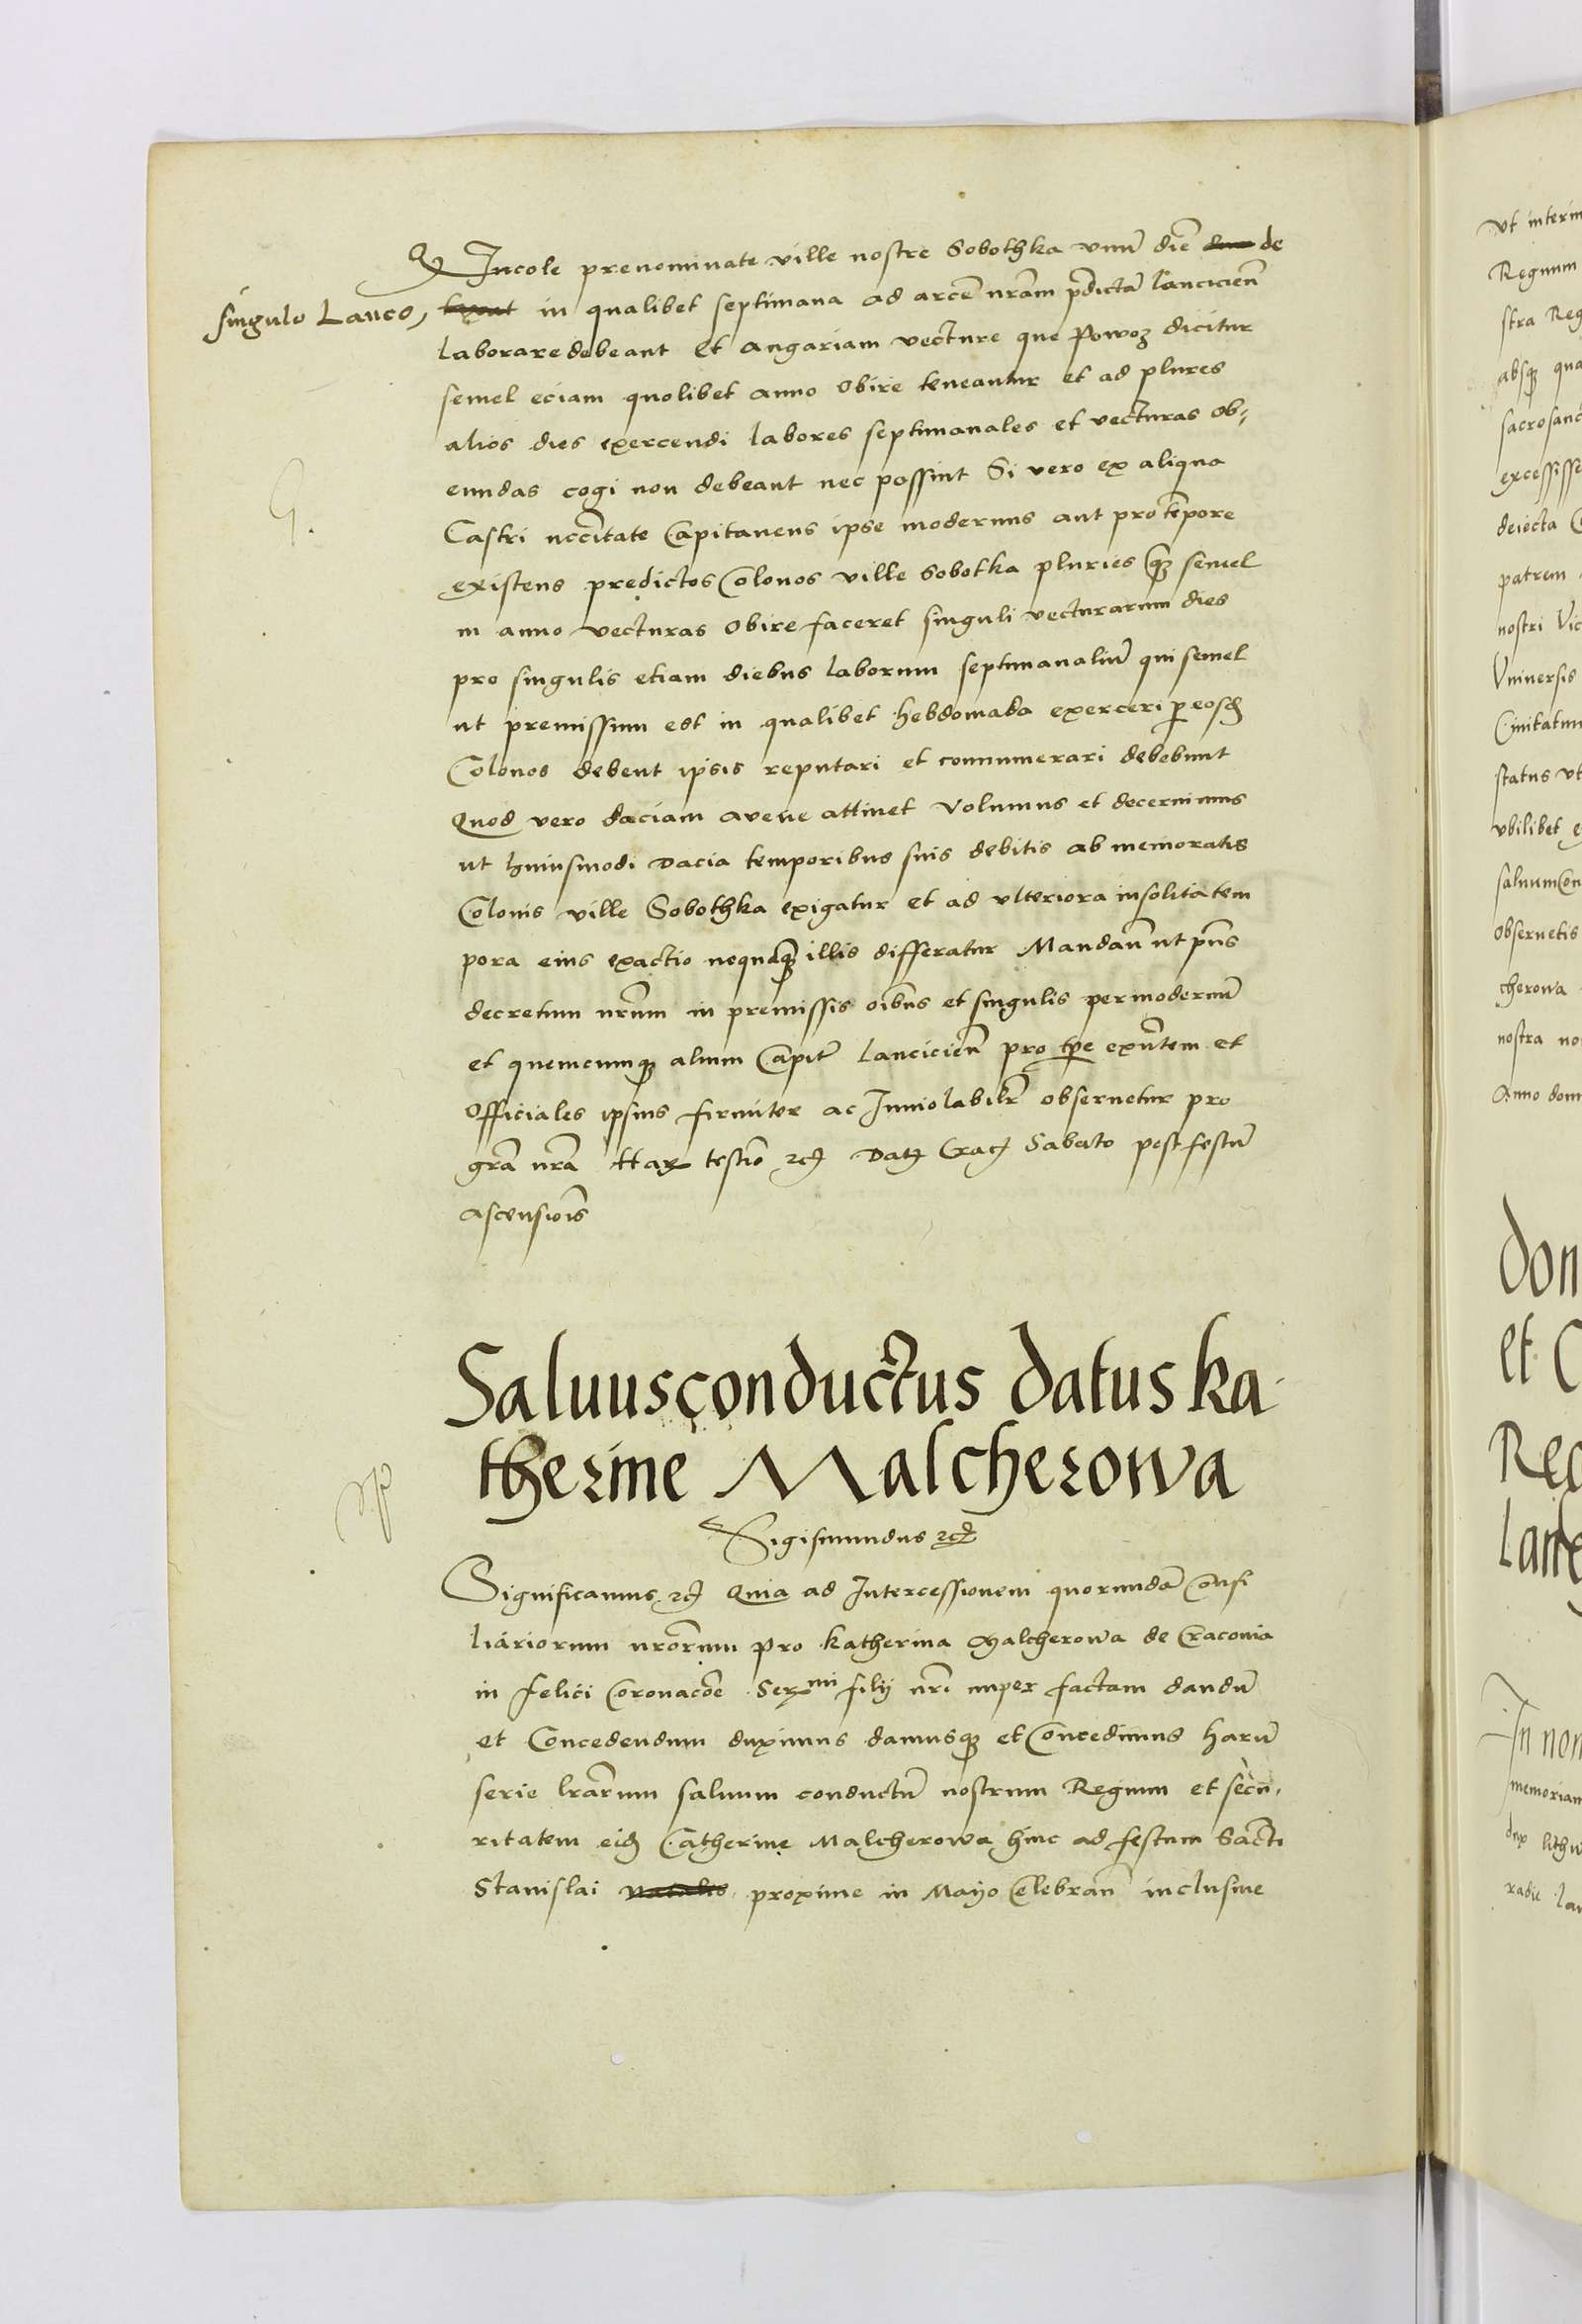 Q Incole prenominate ville nostre Sobothka vnu̅ die̅ de
singulo Laneo, in qualibet septimana ad arce̅ nr̅am p̅dicta̅ lancicien̅
laborare debeant Et angariam vecture que Powoz dicitur
semel eciam quolibet anno obire teneantur et ad plures
alios dies exercendi labores septimanales et vecturas ob-
eundas cogi non debeant nec possint Si vero ex aliqua
G.
Castri ncc̅itate Capitaneus ipse modernus aut pro te̅pore
existens predictos Colonos ville Sobotka pluries qꝫ semel
in anno vecturas obire faceret singuli vecturarum dies
pro singulis etiam diebus laborum septimanaliu̅ qui semel
ut premissum est in qualibet hebdomada exerceri p eosd
Colonos debent ipsis reputari et connumerari debebunt
Quod vero daciam avene attinet volumus et decernimus
ut huiusmodi dacia temporibus suis debitis ab memoratis
Colonis ville Sobothka exigatur et ad vlteriora insolita tem
pora eius exactio nequaqꝫ illis differatur Mandan̅ ut pn̅s
decretum nr̅um in premissis oi̅bus et singulis per modernu̅
et quemcumqꝫ alium Capit̅ lancicien̅ pro tp̅e exn̅tem et
officiales ipsius firmiter ac Inuiolabilr̅ obseruetur pro
gra̅ nr̅a Har̅ testio̅ ꝛc Datꝫ Crac Sabato post festu̅
ascensiois̅
Saluusconductus datus ka-
therine Malcherowa
Sigismundus ꝛc
Significamus ꝛc Quia ad Intercessionem quorunda̅ Consi
liariorum nr̅orum pro katherina Malcherowa de Cracouia
in felici Coronaco̅e Ser mi filij nr̅i nuper factam dandu̅
et Concedendum duximus damusqꝫ et Concedimus haru̅
serie lr̅arum saluum conductu̅ nostrum Regium et secu-
ritatem eid Catherine Malcherowa hinc ad festum Sancti
Stanislai natalis proxime in Mayo Celebran̅ inclusiue
vt interim
Regnum
stra Reg
absqꝫ qua
sacrosanc
excessisse
deiecta
patrem
nostri Vic
Vniuersis
Ciuitatum
status vt
vbilibet
saluum con
obseruetis
cherowa
nostra no
Anno dom
don
et C
Reg
In nom
memoriam
dux lithu
radic lan